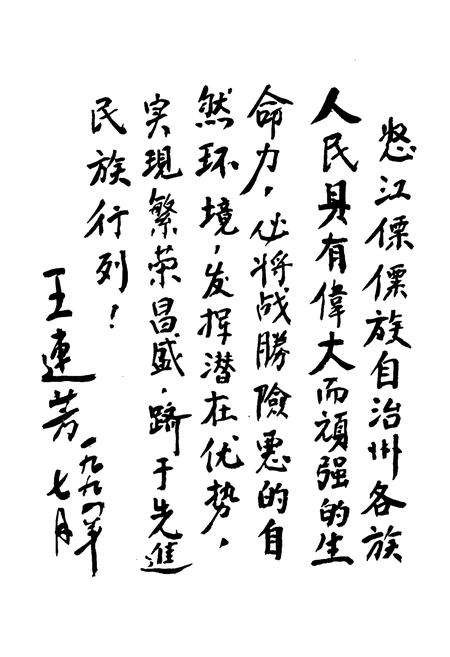 怒江傈僳族自治州各族
人民具有偉大而顽强的生
命力，必将战勝險惡的自
然环境，发挥潜在优势，
实現繁荣昌盛，跻于先進
民族行列！
王連芳
一九九四年
七月